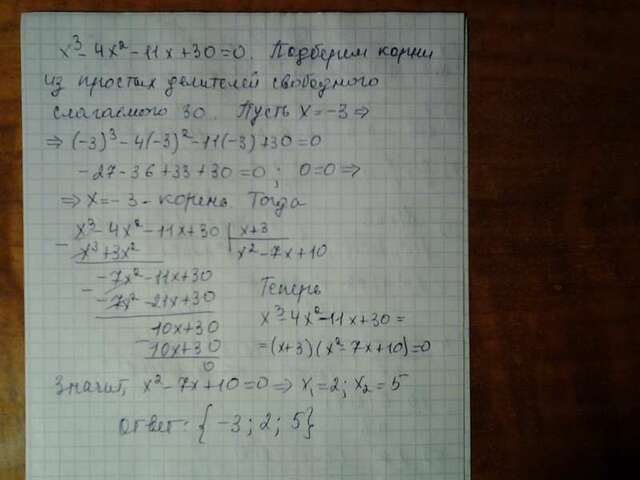 x³ - 4x² - 11x + 30 = 0. Подберем корни
из простых делителей свободного
слагаемого 30. Пусть x = -3 ⇒
⇒ (-3)³ - 4(-3)² - 11(-3) + 30 = 0
-27 - 36 + 33 + 30 = 0; 0 = 0 ⇒
⇒ x = -3 - корень. Тогда
x³ - 4x² - 11x + 30 | x + 3
- x³ + 3x² x² - 7x + 10
-7x² - 11x + 30
- -7x² - 21x + 30
10x + 30
- 10x + 30
0
Теперь
x³ - 4x² - 11x + 30 =
= (x + 3)(x² - 7x + 10) = 0
Значит, x² - 7x + 10 = 0 ⇒ x₁ = 2; x₂ = 5
Ответ: {-3; 2; 5}